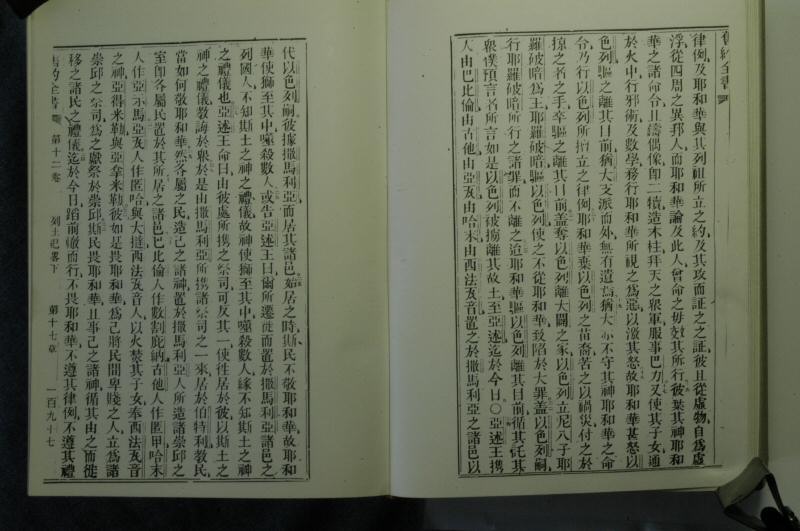 舊約全書
律例及耶和華與其列祖所立之約及其攻而証之之証彼且從虛物自爲虛
浮從四周之異邦人而耶和華論及此人曾命之毋效其所行彼棄其神耶和
華之諸命令且鑄偶像卽二犢造木柱拜天之衆軍服事巴力又使其子女通
於火中行邪術及數學務行耶和華所視之爲惡以激其怒故耶和華甚怒以
色列驅之離其目前猶大支派而外無有遺焉猶大亦不守其神耶和華之命
令乃行以色列所擅立之律例耶和華棄以色列之苗裔苦之以禍災付之於
掠之者之手卒驅之離其目前蓋奪以色列離大闢之家以色列立尼八子耶
羅破暗爲王耶羅破暗驅以色列使之不從耶和華致陷於大罪蓋以色列嗣
行耶羅破暗所行之諸罪而不離之迨耶和華驅以色列離其目前循其託其
衆僕預言者所言如是以色列被擄離其故土至亞述迄於今日○亞述王攜
人由巴比倫由古他由亞瓦由哈末由西法瓦音置之於撒馬利亞之諸邑以
代以色列嗣彼據撒馬利亞而居其諸邑始居之時斯民不敬耶和華故耶和
華使獅至其中噬殺數人或告亞述王曰爾所遷徙而置於撒馬利亞諸邑之
列國人不知斯土之神之禮儀故神使獅至其中噬殺數人緣不知斯土之神
之禮儀也亞述王命曰由彼處所攜之祭司可反其一使往居於彼以斯土之
神之禮儀教誨於衆於是由撒馬利亞所攜諸祭司之一來居於伯特利教民
當如何敬耶和華然各屬之民造己之諸神置於撒馬利亞人所造諸崇邱之
室卽各屬民置於其所居之諸邑巴比倫人作數割庇訥古他人作匿甲哈末
人作亞示馬亞瓦人作匿哈與大撻西法瓦音人以火焚其子女奉西法瓦音
之神亞得米勒與亞拿米勒彼如是畏耶和華爲己將民間卑賤之人立爲諸
崇邱之祭司爲之獻祭於崇邱斯民畏耶和華且事己之諸神循其由之而徙
移之諸民之禮儀迄於今日蹈前轍而行不畏耶和華不遵其律例不遵其禮
舊約全書 第十二卷 列王紀畧下 第十七章 一百九十七